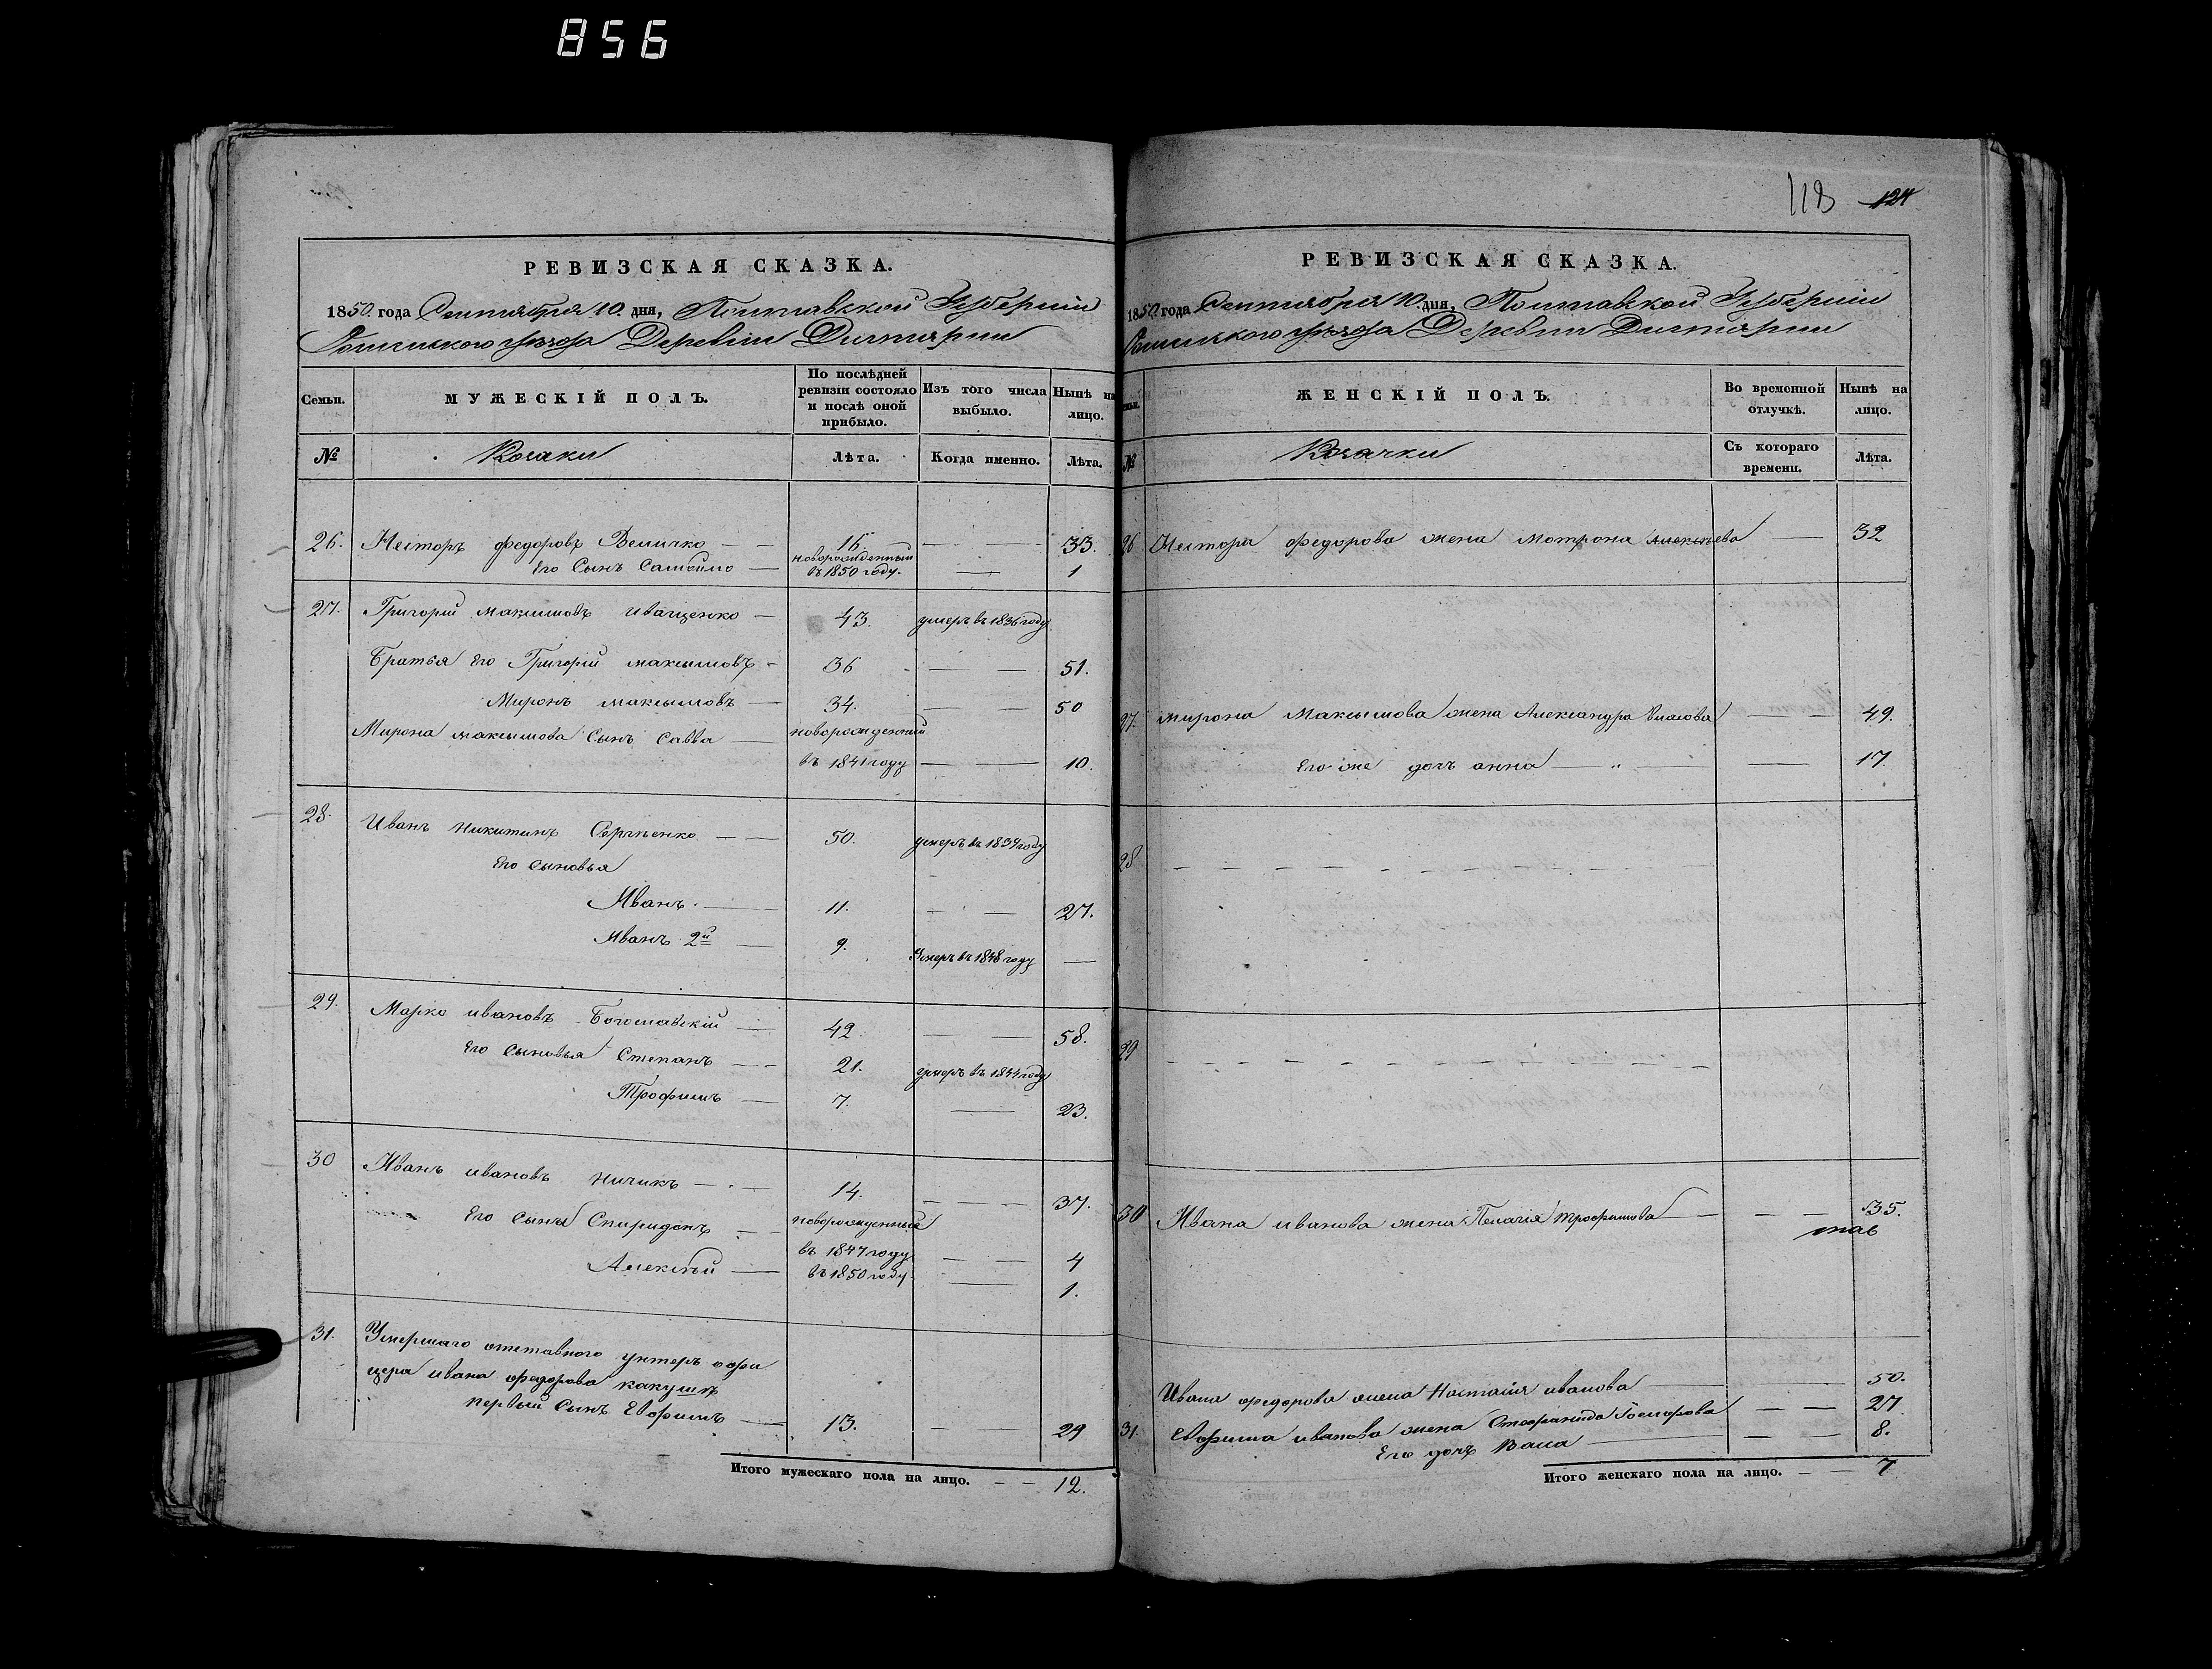 856
118 124
РЕВИЗСКАЯ СКАЗКА.
1850 года Сентября 10 дня, Полтавской Губернии
уезда Деревни
Семьи.
МУЖЕСКІЙ ПОЛЪ.
По послѣдней ревизіи состояло и послѣ оной прибыло.
Изъ того числа выбыло.
Нынѣ на лицо.
№
Козаки
Лѣта.
Когда именно.
Лѣта.
26. Несторъ Федоровъ Величко — 16. — 33.
Его Сынъ Самойло — новорожденный въ 1850 году. — 1
27. Григорій Максимовъ Иващенко — 43. умеръ въ 1836 году
Братья Его Григорій Максымовъ — 36 — 51.
Миронъ Максымовъ — 34. — 50
Мирона Максымова Сынъ Савва — новорожденный
въ 1841 году — 10.
28. Иванъ Никитинъ Сергѣенко — 50. умеръ въ 1834 году
Его Сыновья
Иванъ. — 11. — 27.
Иванъ 2й — 9. Умеръ въ 1848 году —
29. Марко Ивановъ Богославскій — 42. — 58.
Его Сыновья Степанъ — 21. умеръ въ 1844 году
Трофимъ — 7. — 23.
30 Иванъ Ивановъ Ничикъ — 14. — 37.
Его Сыны Спиридонъ — новорожденные
въ 1847 году — 4
Алексѣй — въ 1850 году. — 1.
31. Умершаго отставного унтеръ офи
цера Ивана Федорова
первый Сынъ Евфимъ — 13. — 29
Итого мужескаго пола на лицо. — — 12.
РЕВИЗСКАЯ СКАЗКА.
1850 года Сентября 10 дня, Полтавской Губерніи
уезда Деревни
ЖЕНСКІЙ ПОЛЪ.
Во временной отлучкѣ.
Нынѣ на лицо.
№
Козачки
Съ котораго времени.
Лѣта.
26 Нестора Федорова жена Мотрона Алексѣева — 32
27. Мирона Максымова жена Александра Власова — 49.
Его же дочъ Анна — 17.
28
29
30 Ивана Иванова жена Пелагія Трофимова — 35.
Ивана Федорова жена Настасія Иванова — 50.
31. Евфима Иванова жена Стефанида — 27
Его дочъ — 8.
Итого женскаго пола на лицо. — — 7